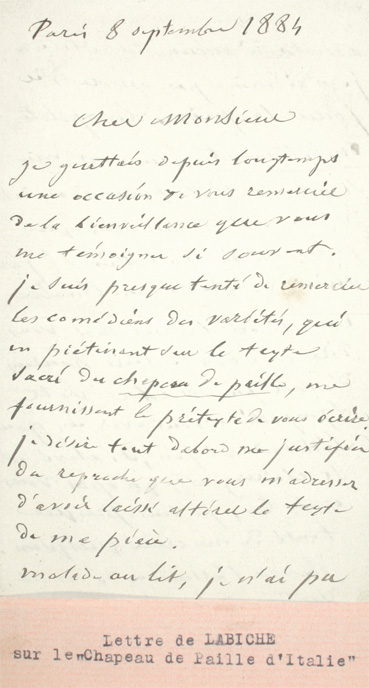 Paris 8 septembre 1884
cher Monsieur
je guettais depuis longtemps
une occasion de vous remercier
de la bienveillance que vous
me témoignez si souvent.
je suis presque tenté de remercier
les comédiens des variétés, qui
en piétinant sur le texte
sacré du chapeau de paille, me
fournissent le prétexte de vous écrire.
je désire tout d'abord me justifier
du reproche que vous m'adressez
d'avoir laissé altérer le texte
de ma pièce.
malade au lit, je n'ai pu
Lettre de LABICHE
sur le "Chapeau de Paille d'Italie"